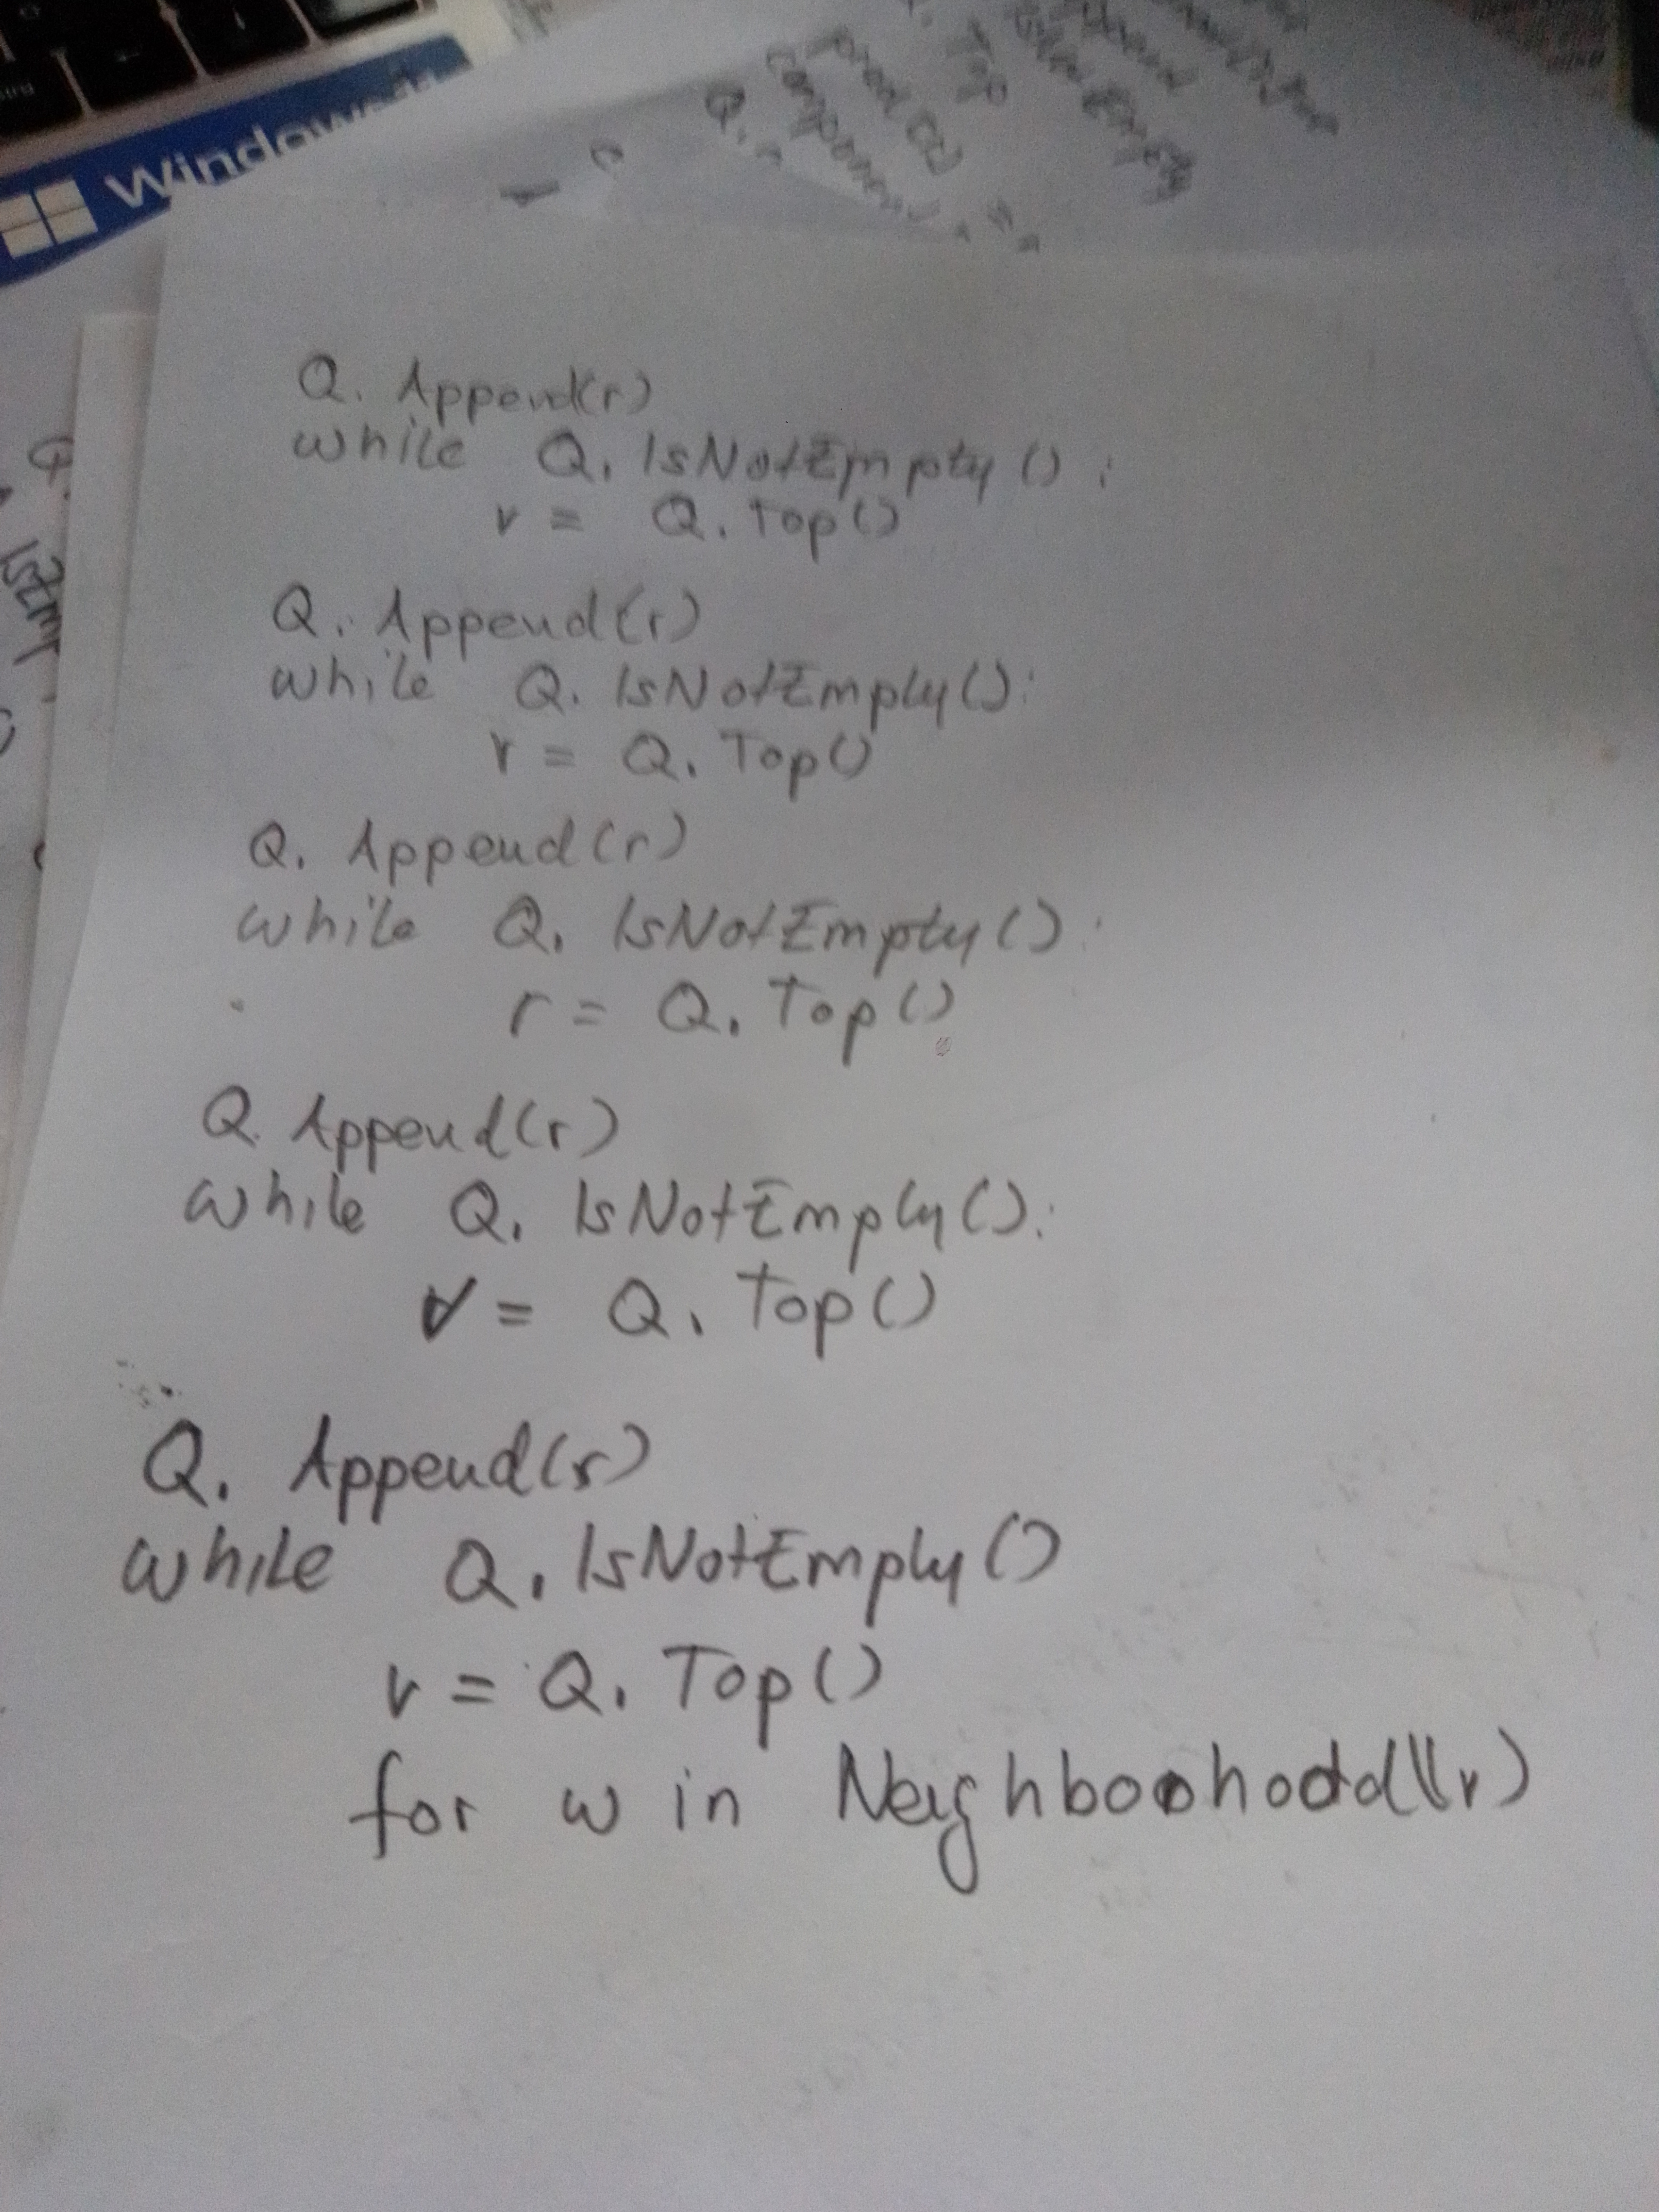 Windows
Top
Q. Append(r)
while Q. IsNotEmpty():
v = Q. Top()
Q. Append(r)
while Q. IsNotEmpty():
r = Q. Top()
Q. Append(r)
while Q. IsNotEmpty():
r = Q. Top()
Q. Append(r)
while Q. IsNotEmpty():
v = Q. Top()
Q. Append(r)
while Q. IsNotEmpty()
v = Q. Top()
for w in Neighboorhood(v)